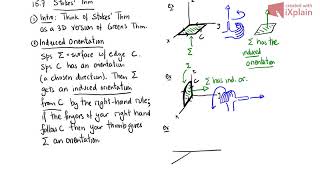 15.7 Stokes' Thm
① Intro: Think of Stokes' Thm
as a 3D version of Green's Thm.
② Induced Orientation
Sps Σ = surface w/ edge C.
Sps C has an orientation
(a chosen direction). Then Σ
gets an induced orientation
from C by the right-hand rule;
if the fingers of your right
hand follow C then your thumb gives
Σ an orientation
Ex
Σ
C
Σ has the
induced
orientation
Ex
Σ
C
Σ has ind. or.
Ex
created with
iXplain